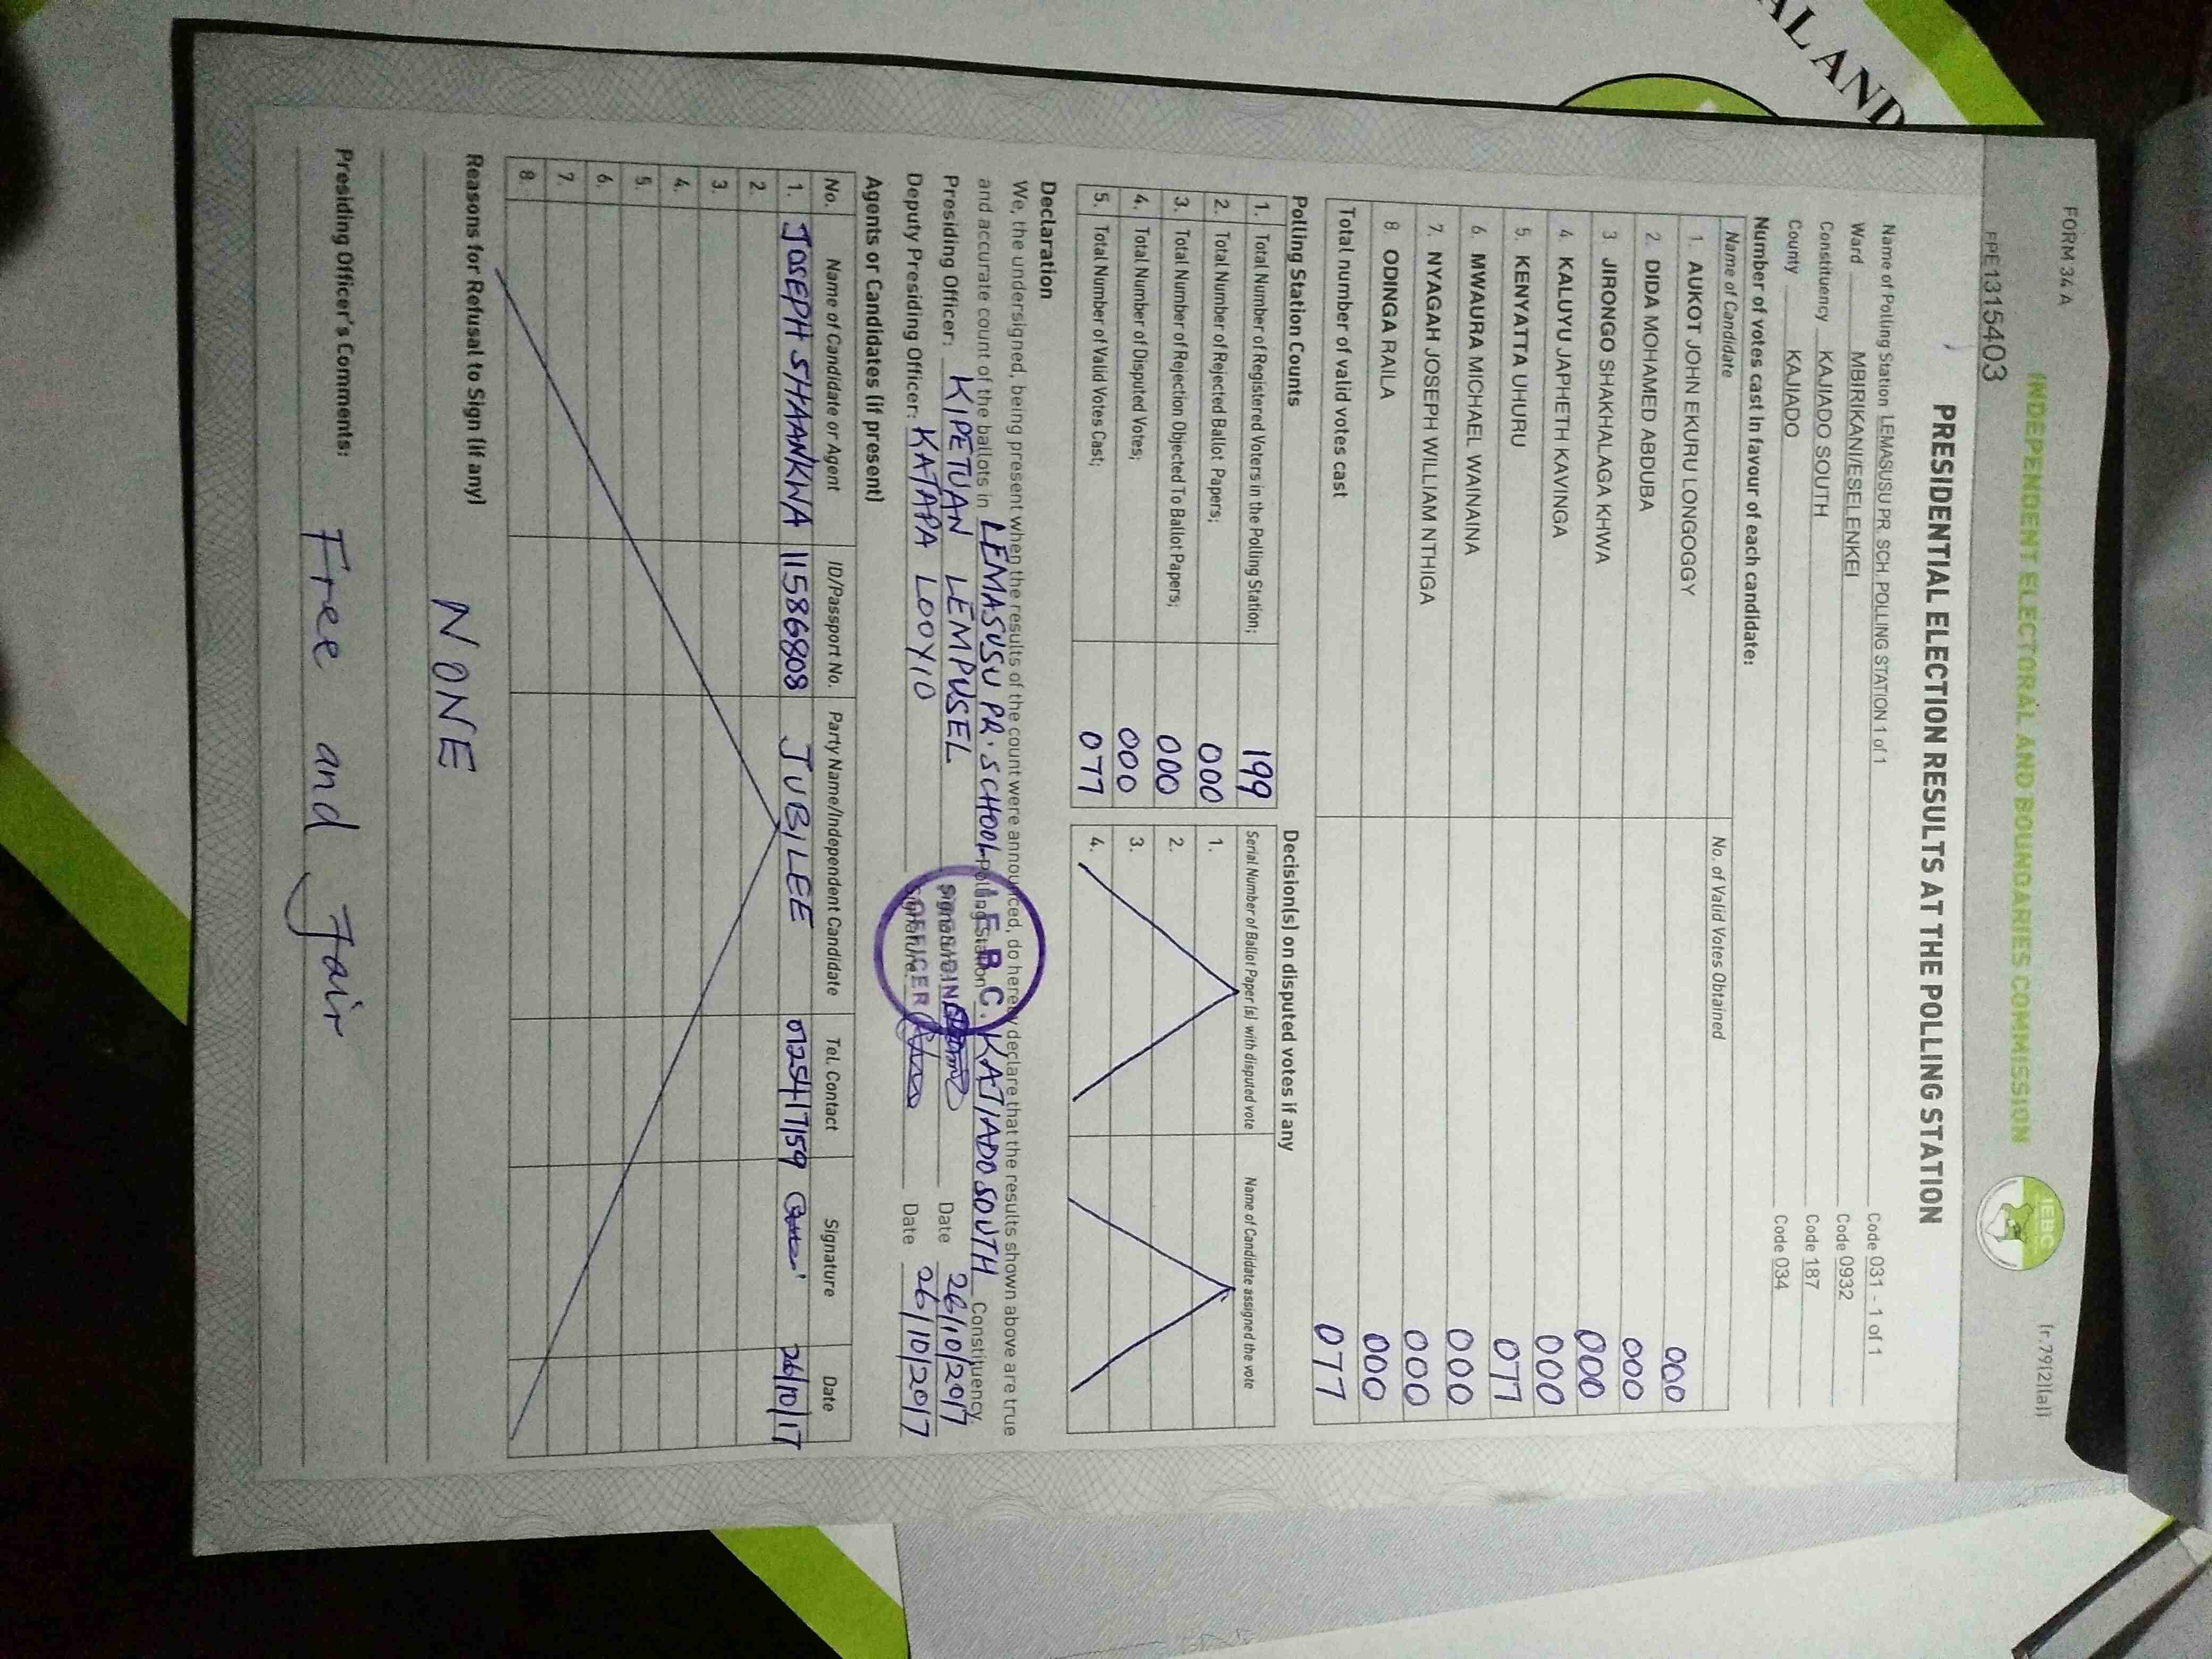 AL AND
FORM 34 A
(r.79(2)(a))
INDEPENDENT ELECTORAL AND BOUNDARIES COMMISSION
IEBC
PRESIDENTIAL ELECTION RESULTS AT THE POLLING STATION
Name of Polling Station LEMASUSU PR. SCH. POLLING STATION 1 of 1 Code 031 - 1 of 1
Ward MBIRIKANI/ESELENKEI Code 0932
Constituency KAJIADO SOUTH Code 187
County KAJIADO Code 034
Number of votes cast in favour of each candidate:
Name of Candidate No. of Valid Votes Obtained
1. AUKOT JOHN EKURU LONGOGGY 000
2. DIDA MOHAMED ABDUBA 000
3. JIRONGO SHAKHALAGA KHWA 000
4. KALUYU JAPHETH KAVINGA 000
5. KENYATTA UHURU 077
6. MWAURA MICHAEL WAINAINA 000
7. NYAGAH JOSEPH WILLIAM NTHIGA 000
8. ODINGA RAILA 000
Total number of valid votes cast 077
Polling Station Counts
1. Total Number of Registered Voters in the Polling Station; 199
2. Total Number of Rejected Ballot Papers; 000
3. Total Number of Rejection Objected To Ballot Papers; 000
4. Total Number of Disputed Votes; 000
5. Total Number of Valid Votes Cast; 077
Decision(s) on disputed votes if any
Serial Number of Ballot Paper (s) with disputed vote Name of Candidate assigned the vote
1.
2.
3.
4.
Declaration
We, the undersigned, being present when the results of the count were announced, do hereby declare that the results shown above are true
and accurate count of the ballots in LEMASUSU PR. SCHOOL Polling Station KAJIADO SOUTH Constituency.
Presiding Officer: KIPETUAN LEMPUSEL Signature: Date 26/10/2017
Deputy Presiding Officer: KATAPA LOOYIO Signature: Date 26/10/2017
I.E.B.C.
PRESIDING
OFFICER
Agents or Candidates (if present)
No. Name of Candidate or Agent ID/Passport No. Party Name/Independent Candidate Tel. Contact Signature Date
1. JOSEPH SHAANKWA 11586808 JUBILEE 0725417159 26/10/17
2.
3.
4.
5.
6.
7.
8.
Reasons for Refusal to Sign (if any)
NONE
Presiding Officer's Comments:
Free and Fair